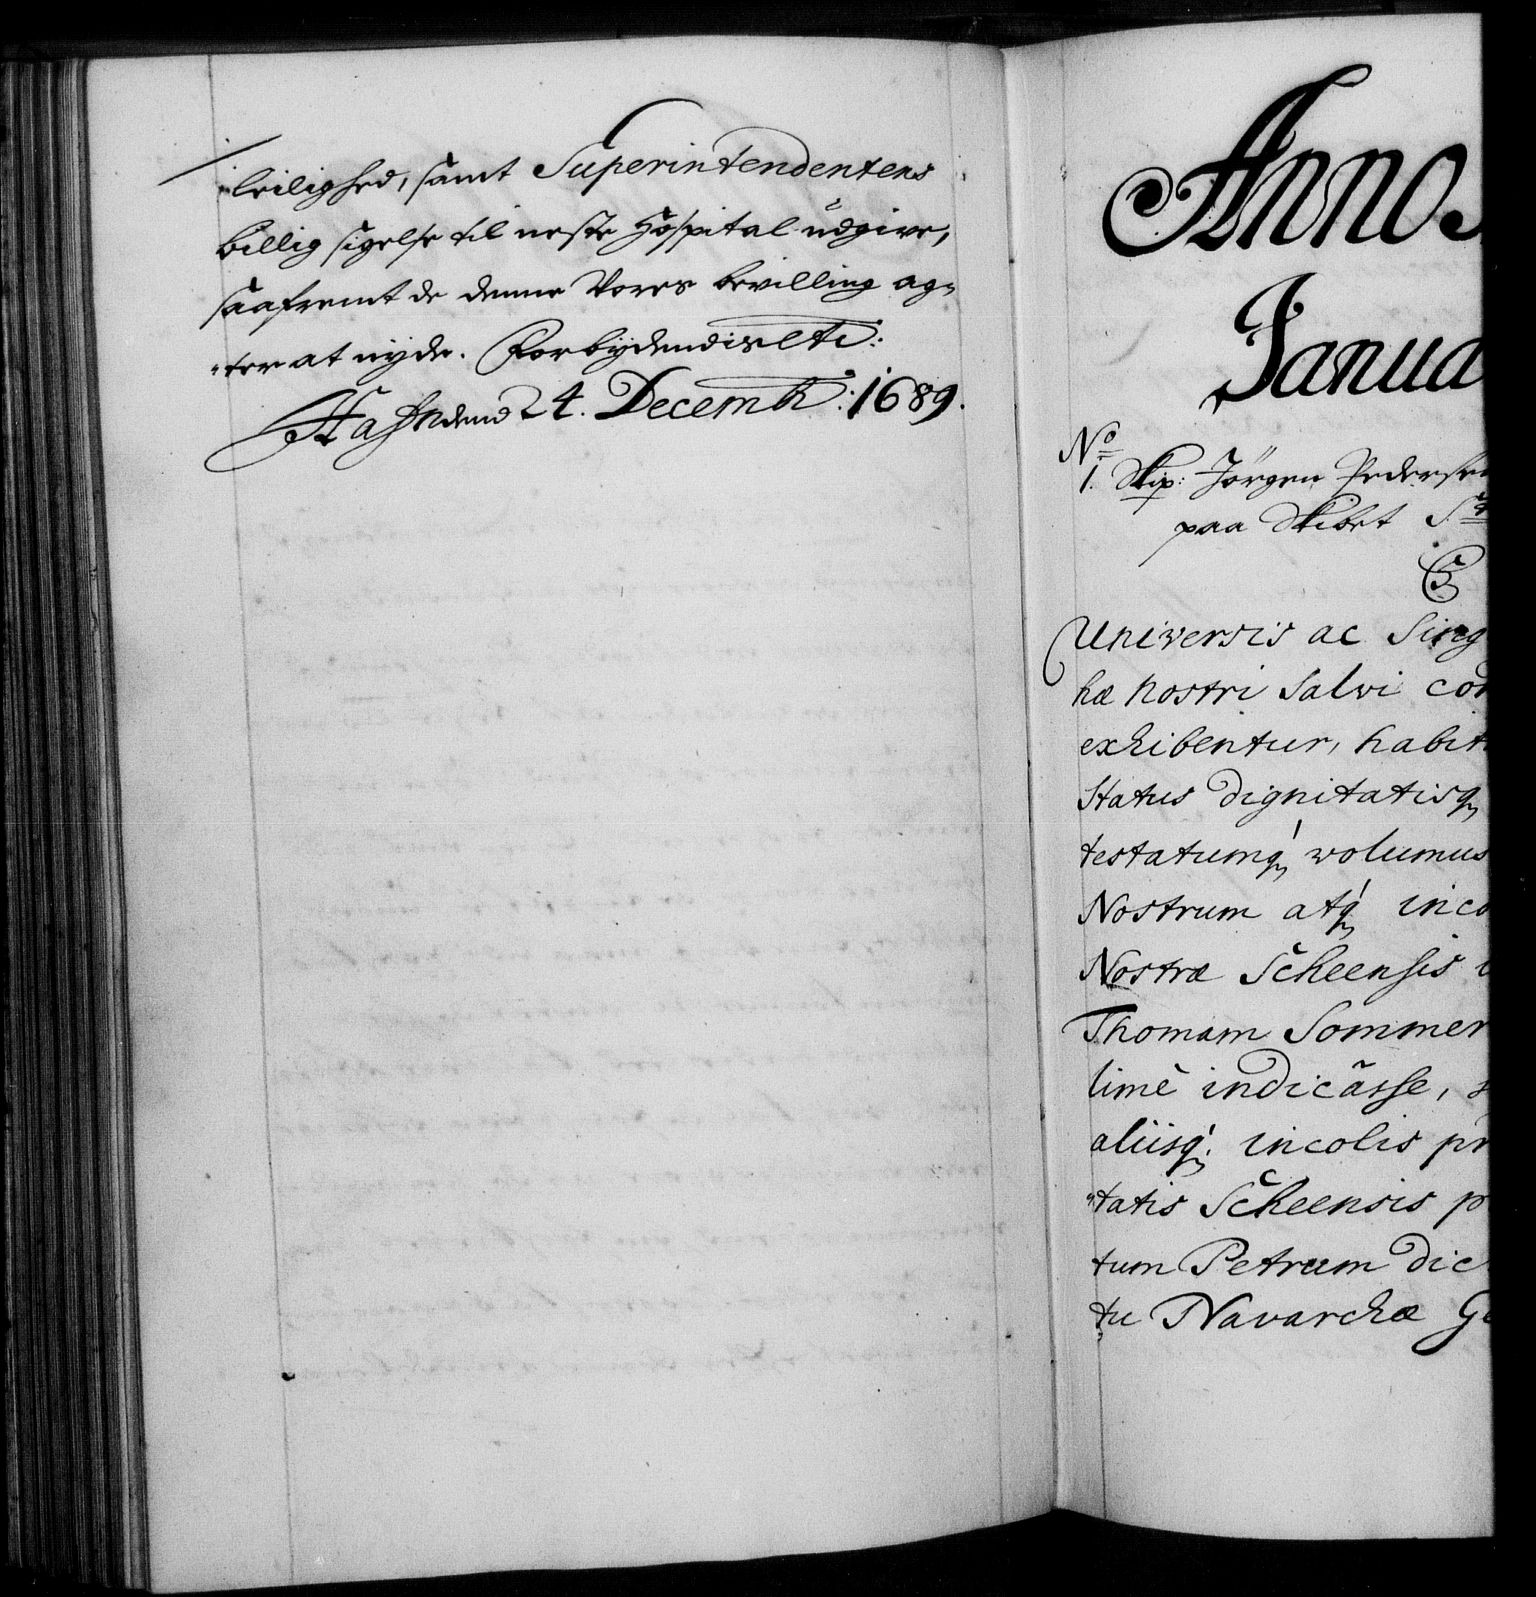 leilighed, samt Superintendentens
billig sigelse til neste Hospital udgive,
saafremt de denne Vores bevilling ag-
-ter at nyde. Forbydendis etc:
Hafn dend 24. Decemb: 1689.
Anno
Janua
No
1. Skip: Jörgen Pedersen
paa Skibet St
C5
Universis ac Sing
hæ nostri Salvi con
exhibentur, habit
Status dignitatisq
testatumq volumus
Nostrum atq inco
Nostræ Scheensis
Thomam Sommer
limè indicâsse, s
aliisq. incolis pr
-tatis Scheensis p
tum Petrum dic
tu Navarchæ Ge